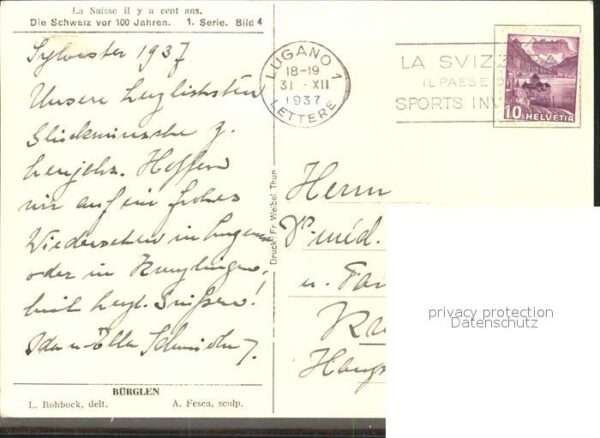 La Suisse il y a cent ans.
Die Schweiz vor 100 Jahren. 1. Serie. Bild 4
Sylvester 1937
Unsere herzlichsten
Glückwünsche z.
Hoffen
wir auf ein frohes
Wiedersehen in Lugano
oder in Kreuzlingen,
mit herzl. Grüssen!
BÜRGLEN
L. Rohbock, delt. A. Fesca, sculp.
Druck: Fr. Weibel, Thun
LUGANO 1
18-19
31.-XII
1937
LETTERE
LA SVIZ
IL PAESE
SPORTS INV
10 HELVETIA
Herrn
Dr. méd.
u.
privacy protection
Datenschutz